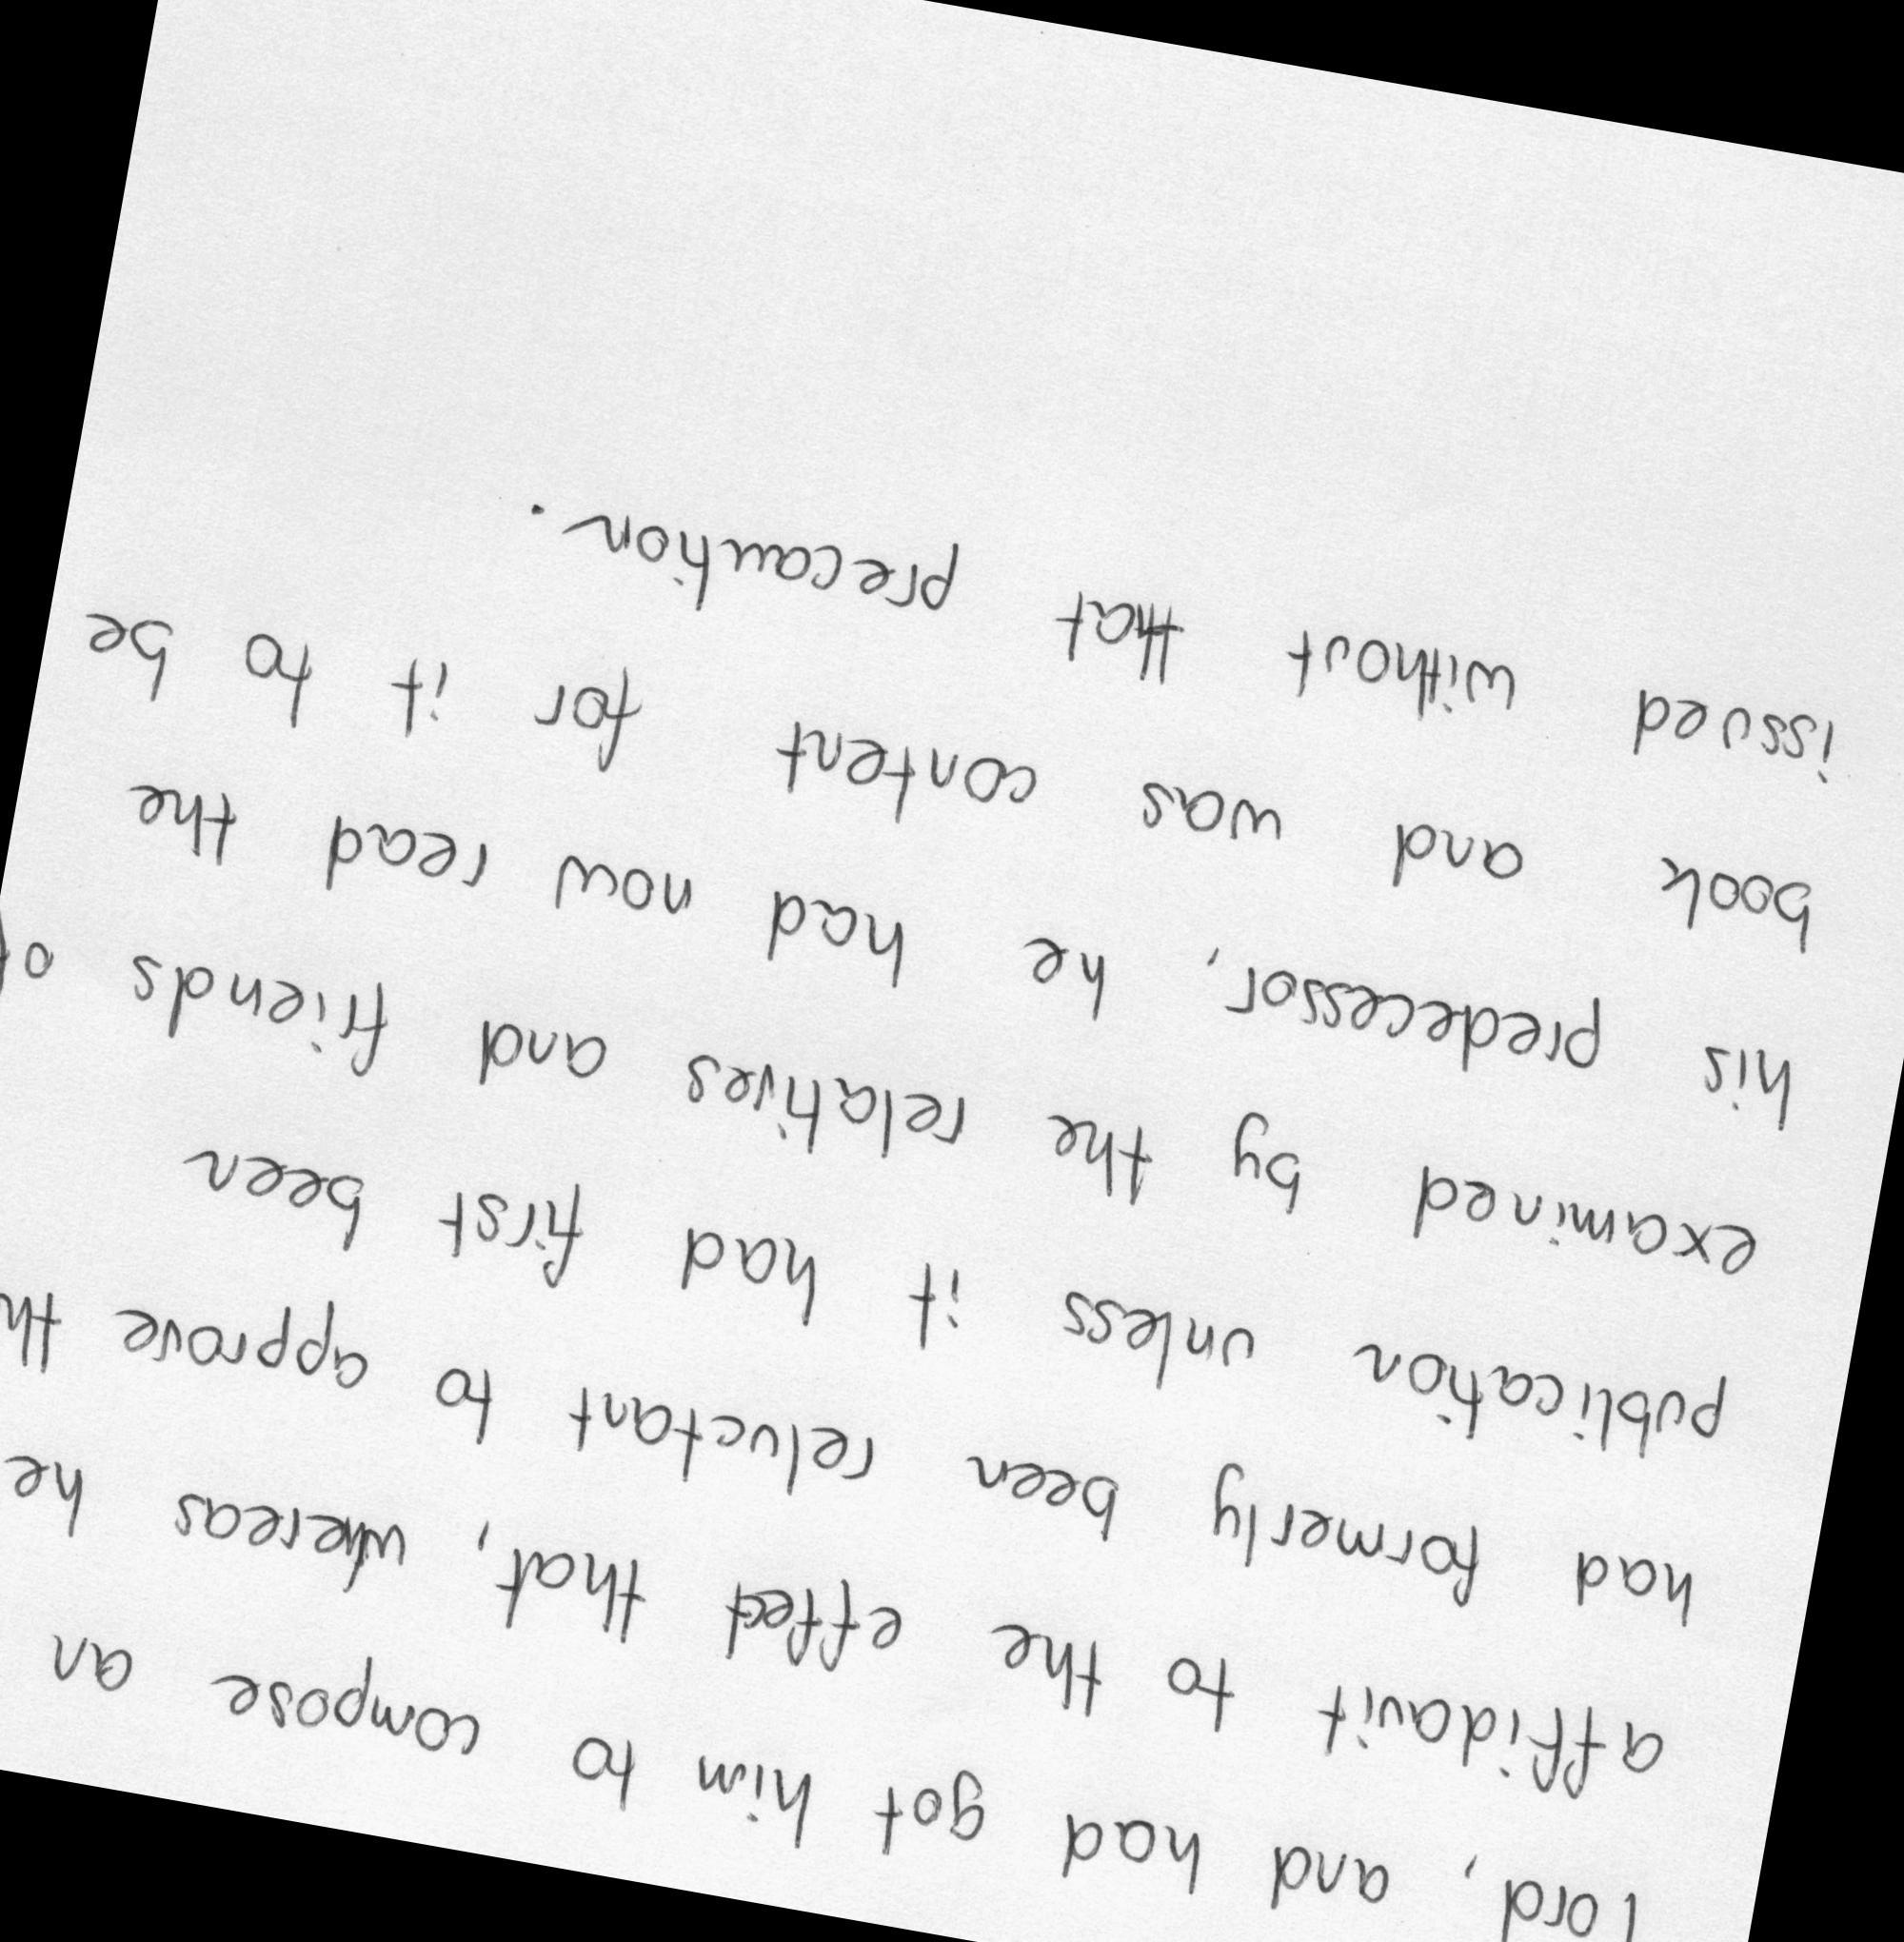 lord, and had got him to compose an
affidavit to the effect that, whereas he
had formerly been reluctant to approve
publication unless it had first been
examined by the relatives and friends of
his predecessor, he had now read the
book and was content for it to be
issued without that precaution.